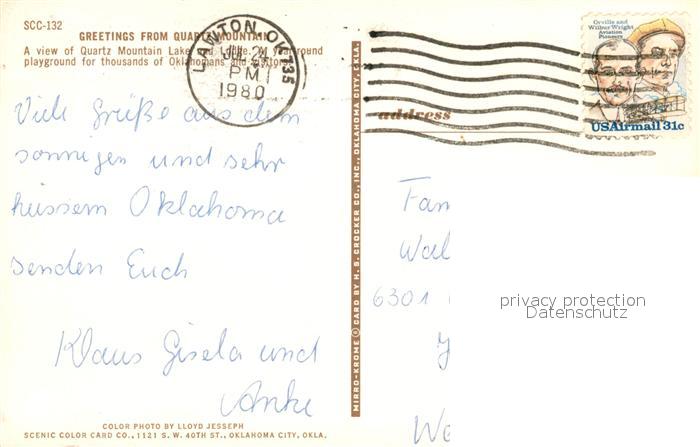 SCC-132
GREETINGS FROM QUARTZ MOUNTAIN
A view of Quartz Mountain Lake and Lodge. A year round
playground for thousands of Oklahomans and visitors.
LAWTON, OK 735
PM
1980
Orville and
Wilbur Wright
Aviation
Pioneers
USAirmail 31c
address
Viele Grüße aus dem
sonnigen und sehr
heissem Oklahoma
senden Euch
Klaus Gisela und
Anke
MIRRO-KROME ® CARD BY H. S. CROCKER CO., INC., OKLAHOMA CITY, OKLA.
Fam
Wal
6301
We
privacy protection
Datenschutz
COLOR PHOTO BY LLOYD JESSEPH
SCENIC COLOR CARD CO., 1121 S. W. 40TH ST., OKLAHOMA CITY, OKLA.